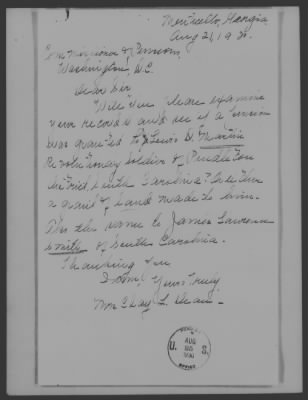 Monticello, Georgia
Aug 21, 19
Commissioner of Pensions,
Washington, D.C.
Dear Sir:
Will you please examine
your records and see if a pension
was granted to Lewis D. Martin
Revolutionary soldier of Pendleton
District, South Carolina? Also
a grant of land made to him.
Also the same to James Lawrence
Smith of South Carolina.
Thanking you
I am, Yours truly,
Mrs
AUG
U. S.